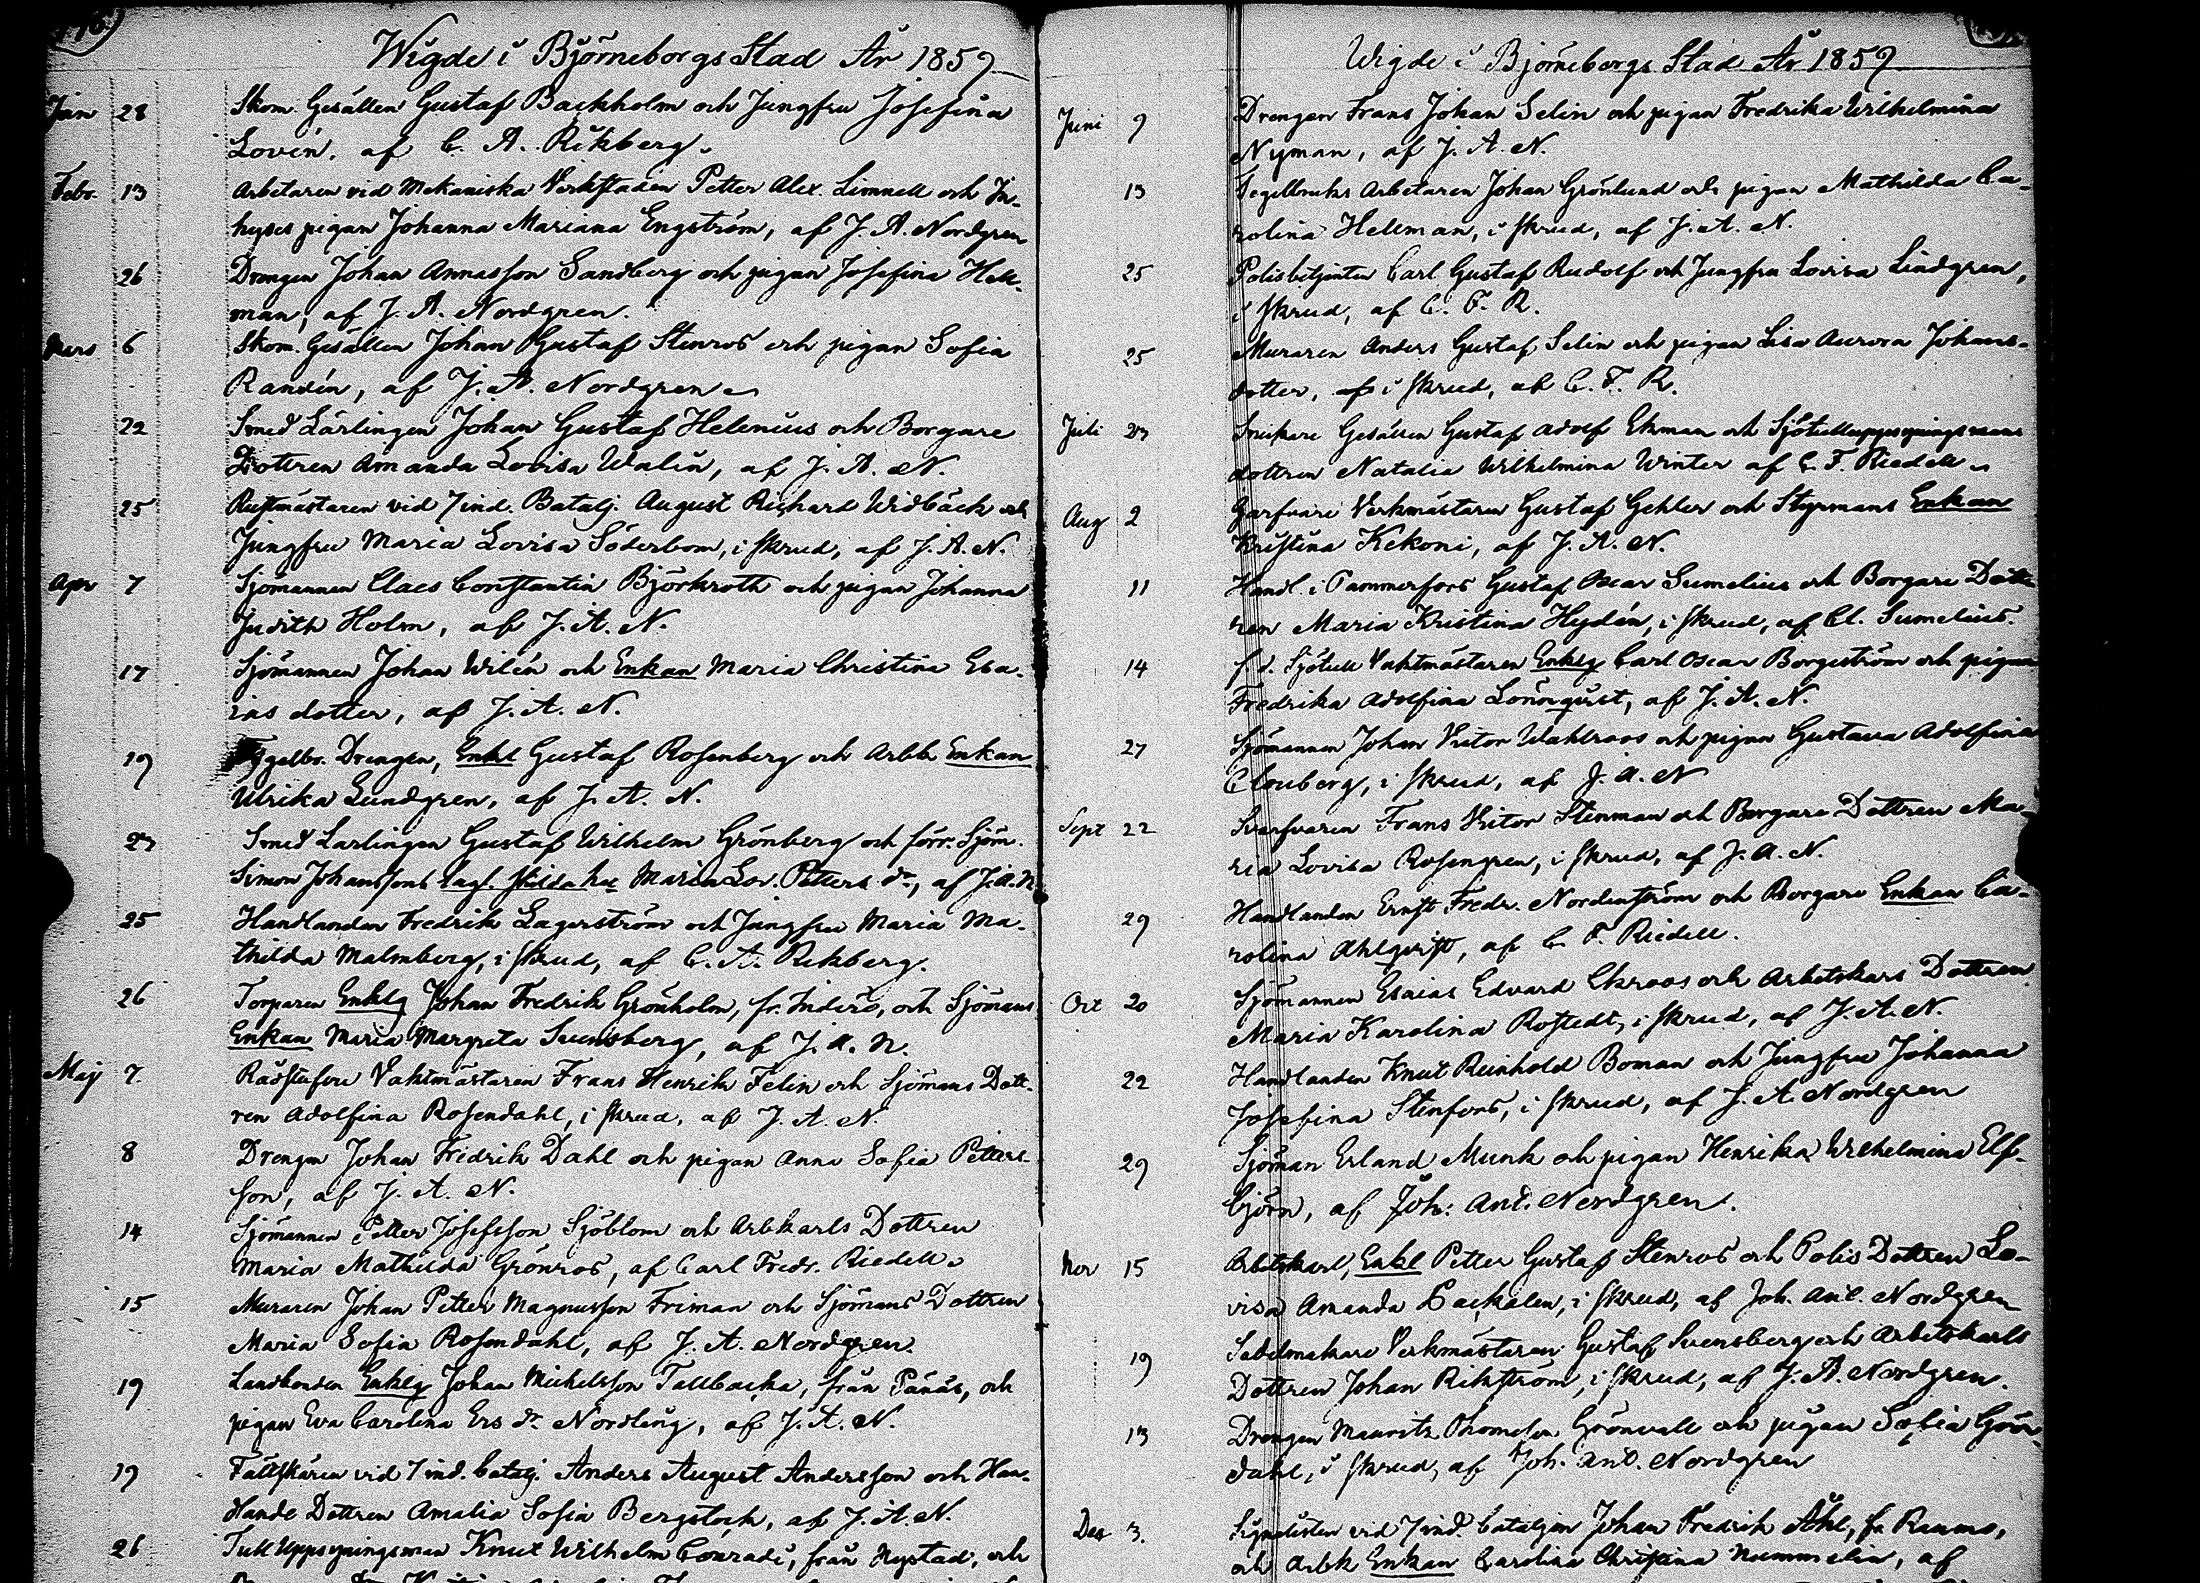 Wigde i Björneborgs Stad År 1859
Jan 28 Skom. Gesällen Gustaf Backholm och Jungfru Josefina
Lovén, af C. A. Rikberg.
Febr. 13 Arbetaren vid Mekaniska Verkstaden Petter Alex. Limnell och In-
hyses pigan Johanna Mariana Engström, af J. A. Nordgren
26 Drengen Johan Annasson Sandberg och pigan Josefina Hell-
man, af J. A. Nordgren.
Mars 6 Skom. Gesällen Johan Gustaf Stenros och pigan Sofia
Randén, af J. A. Nordgren
22 Smed Lärlingen Johan Gustaf Helenius och Borgare
Dottren Amanda Lovisa Walin, af J. A. N.
25 Rustmästaren vid 7 ind. Batalj. August Richard Widbäck och
Jungfru Maria Lovisa Söderbom, i skrud, af J. A. N.
Apr 7 Sjömannen Claes Constantin Björkroth och pigan Johanna
Judith Holm, af J. A. N.
17 Sjömannen Johan Wilén och Enkan Maria Christina Esa-
ias dotter, af J. A. N.
19 Tygelbr. Drengen, Enkl Gustaf Rosenberg och Arbk Enkan
Ulrika Lundgren, af J. A. N.
23 Smed Larlingen Gustaf Wilhelm Grönberg och förr. Sjöm.
Simon Johanssons lagl. skilda hu Maria Lov. Petters dr, af J. A. N.
25 Handlanden Fredrik Lagerström och Jungfru Maria Ma-
thilda Malmberg, i skrud, af C. A. Rikberg.
26 Torparen Enklg Johan Fredrik Grönholm, fr. Inderö, och Sjömans
Enkan Maria Margreta Svensberg, af J. A. N.
Maij 7. Rådstufvu Vaktmästaren Frans Henrik Felin och Sjömans Dott-
ren Adolfina Rosendahl, i skrud, af J. A. N.
8 Drengen Johan Fridrik Dahl och pigan Anna Sofia Petters-
son, af J. A. N.
14 Sjömannen Petter Josefsson Sjöblom och Arbkarls Dottren
Maria Mathilda Grönros, af Carl Fredr. Riedell.
15 Muraren Johan Petter Magnusson Friman och Sjömans Dottren
Maria Sofia Rosendahl, af J. A. Nordgren.
19 Landbonden Enklg Johan Michelsson Tallbacka, från Pänäs, och
pigan Eva Carolina Ers dr Nordling, af J. A. N.
19 Fältskären vid 7 ind. batalj. Anders August Andersson och Han-
dlande Dottren Amalia Sofia Bergstock, af J. A. N.
26 Tull Uppsyningsman Knut Wilhelm Conradi, från Nystad, och
Wigde i Björneborgs Stad År 1859
Juni 9 Drengen Frans Johan Selin och pigan Fredrika Wilhelmina
Nyman, af J. A. N.
13 Tegelbruks Arbetaren Johan Grönlund och pigan Mathilda Ca-
rolina Hellman, i skrud, af J. A. N.
25 Polisbetjenten Carl Gustaf Rudolf och Jungfru Lovisa Lindgren,
i skrud, af C. F. R.
25 Muraren Anders Gustaf Selin och pigan Lisa Aurora Johans-
dotter, af i skrud, af C. F. R.
Juli 23 Snickare Gesällen Gustaf Adolf Ekman och Sjötulluppsyningsmans
dottren Natalia Wilhelmina Winter af C. F. Riedell.
Aug 2 Garfvare Verkmästaren Gustaf Gehler och Styrmans Enkan
Kristina Kekoni, af J. A. N.
11 Handl. i Tammerfors Gustaf Oscar Sumelius och Borgare Dott-
ren Maria Kristina Hydén, i skrud, af Cl. Sumelius.
14 f. d. Sjötull Vaktmästaren Enklg Carl Oscar Borgström och pigan
Fredrika Adolfina Lönnqvist, af J. A. N.
27 Sjömannen Johan Victor Wahlroos och pigan Gustava Adolfina
Clouberg, i skrud, af J. A. N
Sept 22 Svarfvaren Frans Victor Stenman och Borgare Dottren Ma-
ria Lovisa Rosengren, i skrud, af J. A. N.
29 Handlanden Ernst Fredr. Nordenström och Borgare Enkan Ca-
rolina Ahlqvist, af C. F. Riedell.
Oct 20 Sjömannen Esaias Edvard Ekroos och Arbetskars Dottren
Maria Karolina Rostedt, i skrud, af J. A. N.
22 Handlanden Knut Reinhold Boman och Jungfru Johanna
Josefina Stenfors, i skrud, af J. A. Nordgren
29 Sjöman Erland Munk och pigan Henrika Wilhelmina Elf-
björn, af Joh: Ant. Nordgren.
Nov 15 Arbetskarl, Enkl Petter Gustaf Stenros och Polis Dottren Lo-
visa Amanda Backalen, i skrud, af Joh. Ant. Nordgren
19 Sadelmakare Verkmästaren Gustaf Svensberg och Arbetskarls
Dottren Johan Rikström, i skrud, af J. A. Nordgren.
13 Drengen Mauritz Thomsson Grönvall och pigan Sofia Grön-
dahl, i skrud, af Joh. Ant. Nordgren
Dec 3. Signalisten vid 7 ind. bataljon Johan Fredrik Åhl, fr Raumo,
och Arbk Enkan Carolina Christina Nummelin, af